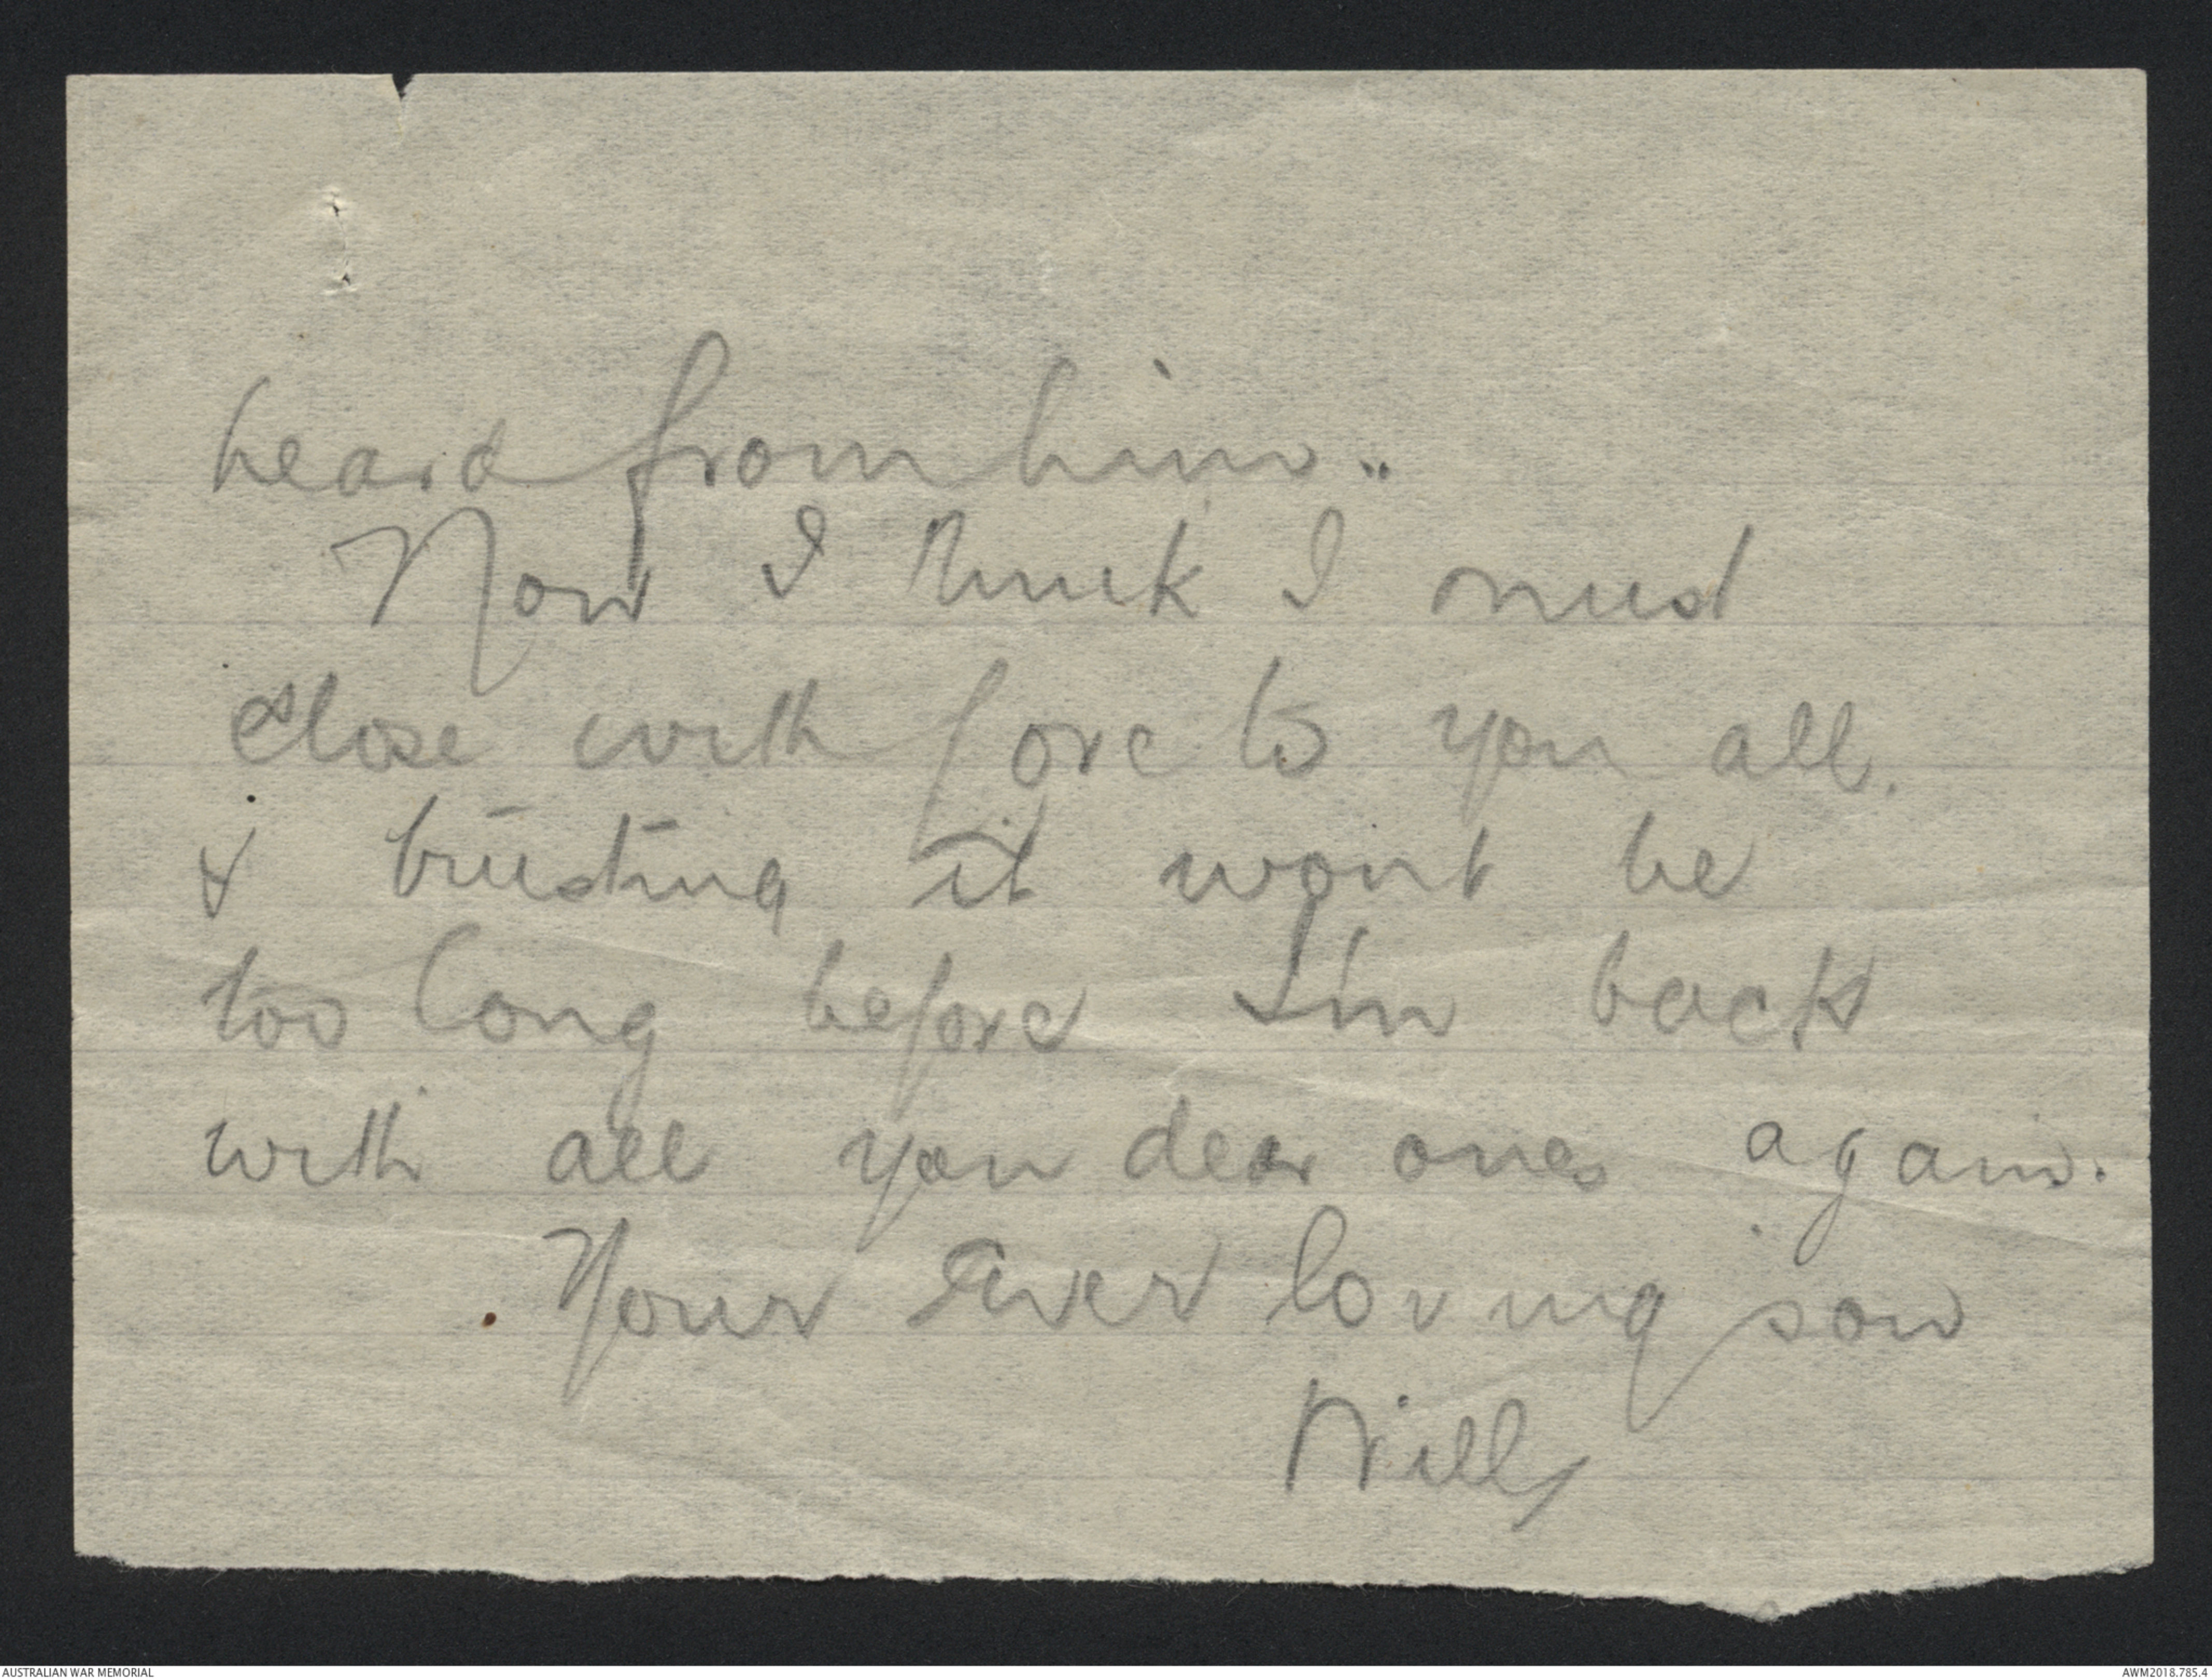 heard from him..
Now I think I must
close with love to you all.
& trusting it wont be
too long before I'm back
with all you dear ones again.
Your Ever loving son
Will
AUSTRALIAN WAR MEMORIAL
AWM2018.785.4